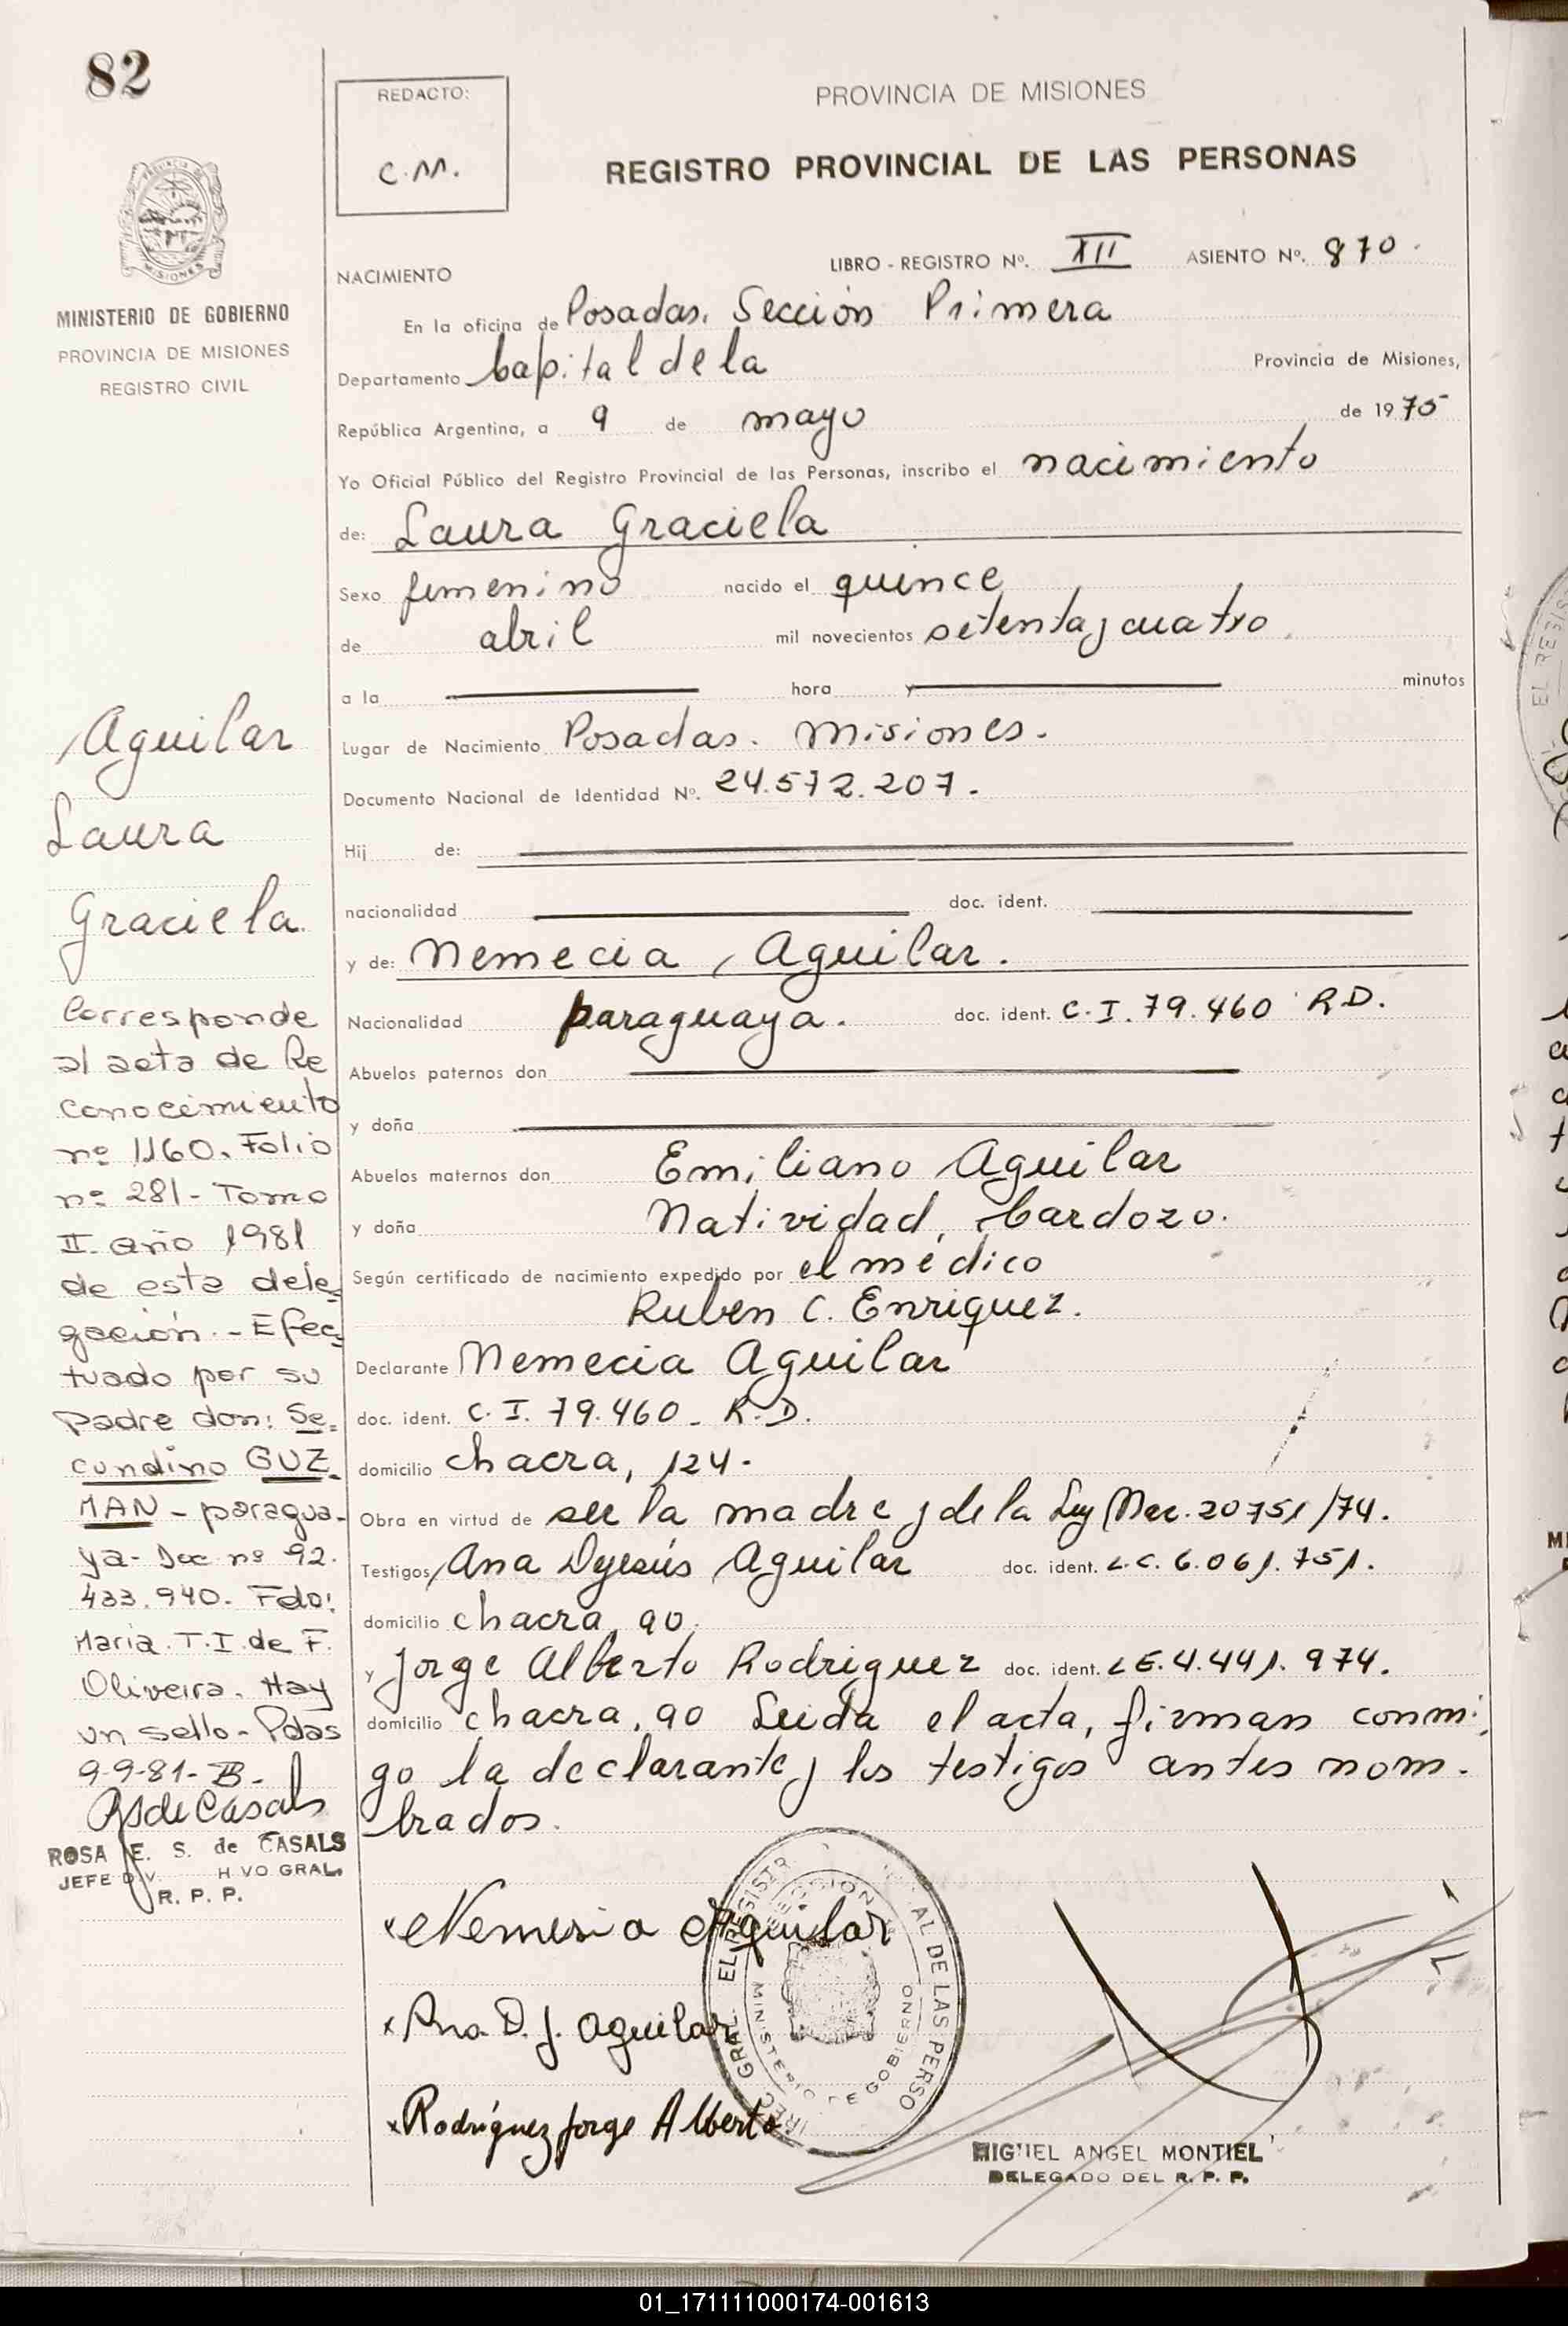 82
REDACTO:
C.M.
PROVINCIA DE MISIONES
REGISTRO PROVINCIAL DE LAS PERSONAS
MISIONES
MINISTERIO DE GOBIERNO
PROVINCIA DE MISIONES
REGISTRO CIVIL
LIBRO - REGISTRO Nº. XII ASIENTO Nº. 870.
NACIMIENTO
En la oficina de Posadas. Sección Primera
Departamento Capital de la Provincia de Misiones,
República Argentina, a 9 de mayo de 1975
Yo Oficial Público del Registro Provincial de las Personas, inscribo el nacimiento
de: Laura Graciela
Sexo femenino nacido el quince
de abril mil novecientos setenta y cuatro
a la hora y minutos
Lugar de Nacimiento Posadas. Misiones.
Documento Nacional de Identidad Nº. 24.572.207.
Hij de:
nacionalidad doc. ident.
y de: Nemecia, Aguilar.
Nacionalidad paraguaya. doc. ident. C.I. 79.460 R.D.
Abuelos paternos don
y doña
Abuelos maternos don Emiliano Aguilar
y doña Natividad, Cardozo.
Según certificado de nacimiento expedido por el médico
Ruben C. Enriquez.
Declarante Nemecia Aguilar
doc. ident. C.I. 79.460 - R.D.
domicilio chacra, 124.
Obra en virtud de ser la madre y de la Ley Nac. 20751/74.
Testigos, Ana Dejesús Aguilar doc. ident. L.C. 6.061.751.
domicilio chacra, 90.
y Jorge Alberto Rodriguez doc. ident. LE. 4.441.974.
domicilio chacra, 90 Leida el acta, firman conmi-
go la declarante y los testigos antes nom-
brados.
Aguilar
Laura
Graciela.
Corresponde
al acta de Re
conocimiento
nº 1160. Folio
nº 281 - Tomo
II. año 1981
de esta dele-
gación. - Efec-
tuado por su
padre don: Se-
cundino GUZ-
MAN - paragua-
ya - Doc nº 92.
433.940. Fdo:
Maria. T. I. de F.
Oliveira. Hay
un sello - Pdas
9-9-81 - B -
RSdeCasals
ROSA E. S. de CASALS
JEFE DIV. H VO GRAL.
R. P. P.
x Nemesia Aguilar
x Ana D. J. Aguilar
x Rodríguez Jorge Alberto
MINISTERIO DE GOBIERNO
MIGUEL ANGEL MONTIEL
DELEGADO DEL R. P. P.
01_171111000174-001613